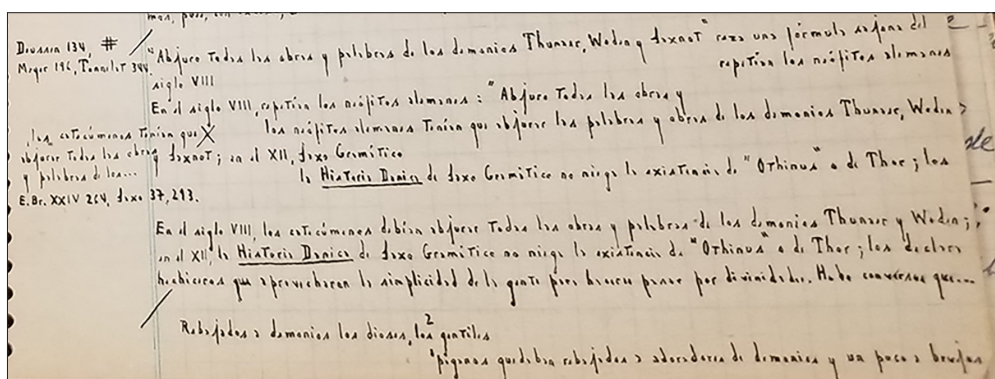 mas, pues, con
Deussen 134, #
Meyer 196, Tonnelat 344.
"Abjuro todas las obras y palabras de los demonios Thunaer, Woden y Saxnot" reza una fórmula sajona del
siglo VIII
repetían los neófitos alemanes
En el siglo VIII, repetían los neófitos alemanes: "Abjuro todas las obras y
los neófitos alemanes tenían que abjurar las palabras y obras de los demonios Thunaer, Woden
los catecúmenos tenían que X
abjurar todas las obras
y palabras de los...
y Saxnot; en el XII, Saxo Gramático
la Historia Danica de Saxo Gramático no niega la existencia de "Othinus" o de Thor; los
E.Br. XXIV 264, Saxo 37, 293.
En el siglo VIII, los catecúmenos debían abjurar todas las obras y palabras de los demonios Thunaer y Woden;
en el XII la Historia Danica de Saxo Gramático no niega la existencia de "Othinus" o de Thor; los declara
hechiceros que aprovecharon la simplicidad de la gente para hacerse pasar por divinidades. Hubo conversos que...
Rebajados a demonios los dioses, los gentiles
2
"paganos quedaban rebajados a adoradores de demonios y un poco a brujos